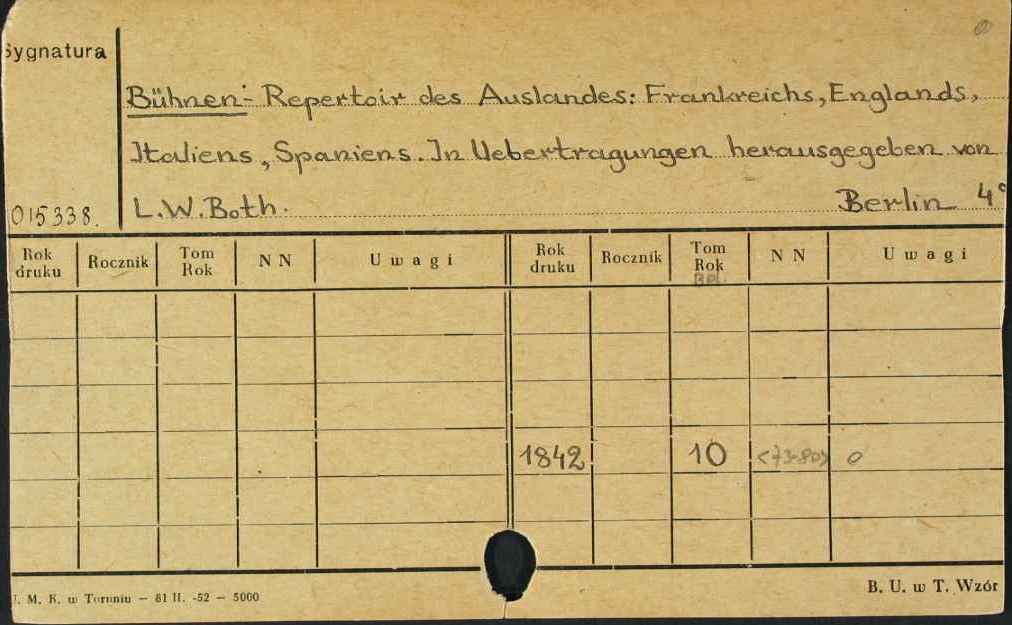 Sygnatura
Bühnen- Repertoir des Auslandes: Frankreichs, Englands,
Italiens, Spaniens. In Uebertragungen herausgegeben von
015338. L.W. Both. Berlin 4°
Rok druku Rocznik Tom Rok NN Uwagi Rok druku Rocznik Tom Rok Bd. NN Uwagi
1842 10 <73-80> 0
U. M. K. w Toruniu — 81 II. -52 — 5000 B. U. w T. Wzór